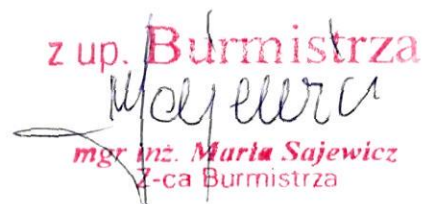 z up. Burmistrza
mgr inż. Marta Sajewicz
Z-ca Burmistrza